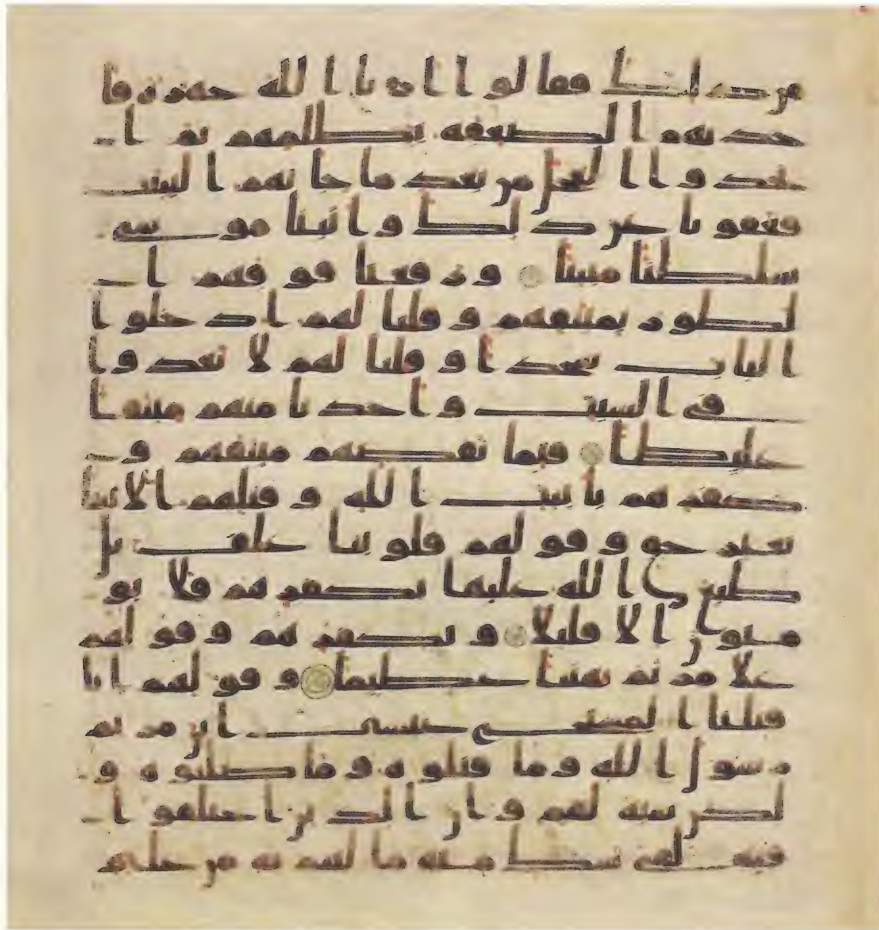 من ذلك فقالوا ارنا الله جهرة فا
خذتهم الصعقة بظلمهم ثم ا
تخذوا العجل من بعد ما جاتهم البينت
فعفونا عن ذلك واتينا موسى
سلطنا مبينا ورفعنا فوقهم ا
لطور بميثقهم وقلنا لهم ادخلوا
الباب سجدا وقلنا لهم لا تعدوا
في السبت واخذنا منهم ميثقا
غليظا فبما نقضهم ميثقهم و
كفرهم بايت الله وقتلهم الانبيا
بغير حق وقولهم قلوبنا غلف بل
طبع الله عليها بكفرهم فلا يو
منون الا قليلا وبكفرهم وقولهم
على مريم بهتنا عظيما وقولهم انا
قتلنا المسيح عيسى ابن مريم
رسول الله وما قتلوه وما صلبوه و
لكن شبه لهم وان الذين اختلفوا
فيه لفي شك منه ما لهم به من علم